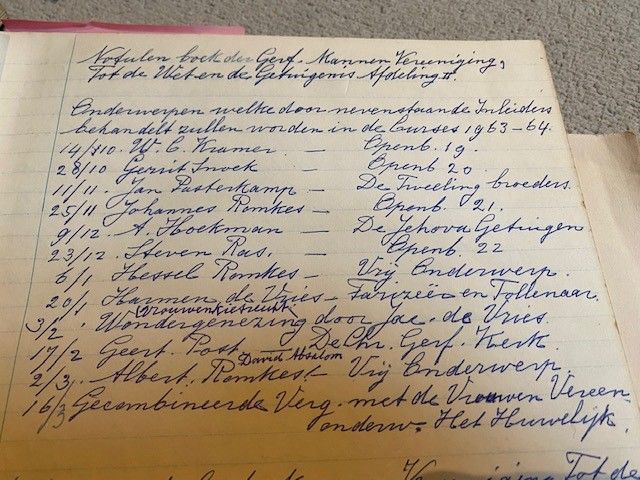 Notulen boek der Geref. Mannen Vereeniging,
Tot de Wet en de Getuigenis Afdeling II.
Onderwerpen welke door nevenstaande Inleiders
behandelt zullen worden in de Curses 1963-64.
14/10. W. C. Kramer. — Openb. 19.
28/10 Gerrit Snoek — Openb 20.
11/11 Jan Pasterkamp — De Tweeling broeders.
25/11 Johannes Romkes — Openb. 21.
9/12. A. Hoekman — De Jehova Getuigen
23/12. Steven Ras. — Openb. 22
6/1 Hessel Romkes — Vrij Onderwerp.
20/1 Harmen de Vries — Farizeër en Tollenaar.
Vrouwenkiesrecht
3/2 Wondergenezing door Jac. de Vries.
17/2 Geert Post — De Chr. Geref. Kerk.
David Absalom
2/3. Albert Romkes — Vrij Onderwerp.
16/3 Gecombineerde Verg. met de Vrouwen Vereen.
onderw = Het Huwelijk.
Tot de